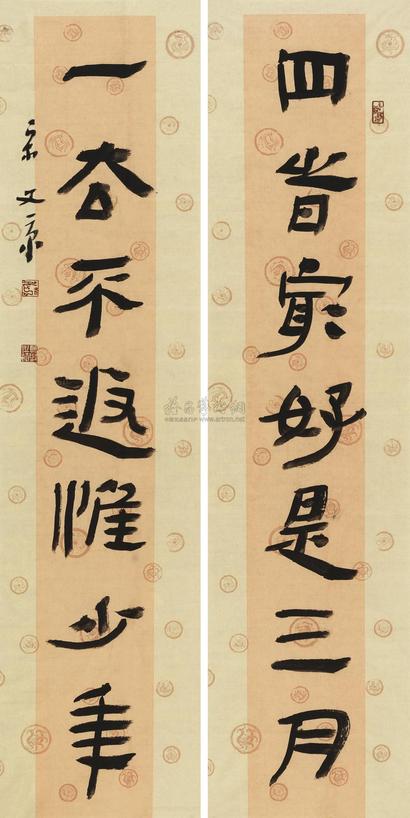 四旹冣好是三月
一厺不返惟少年
宋文京
雅昌艺术网
www.artron.net